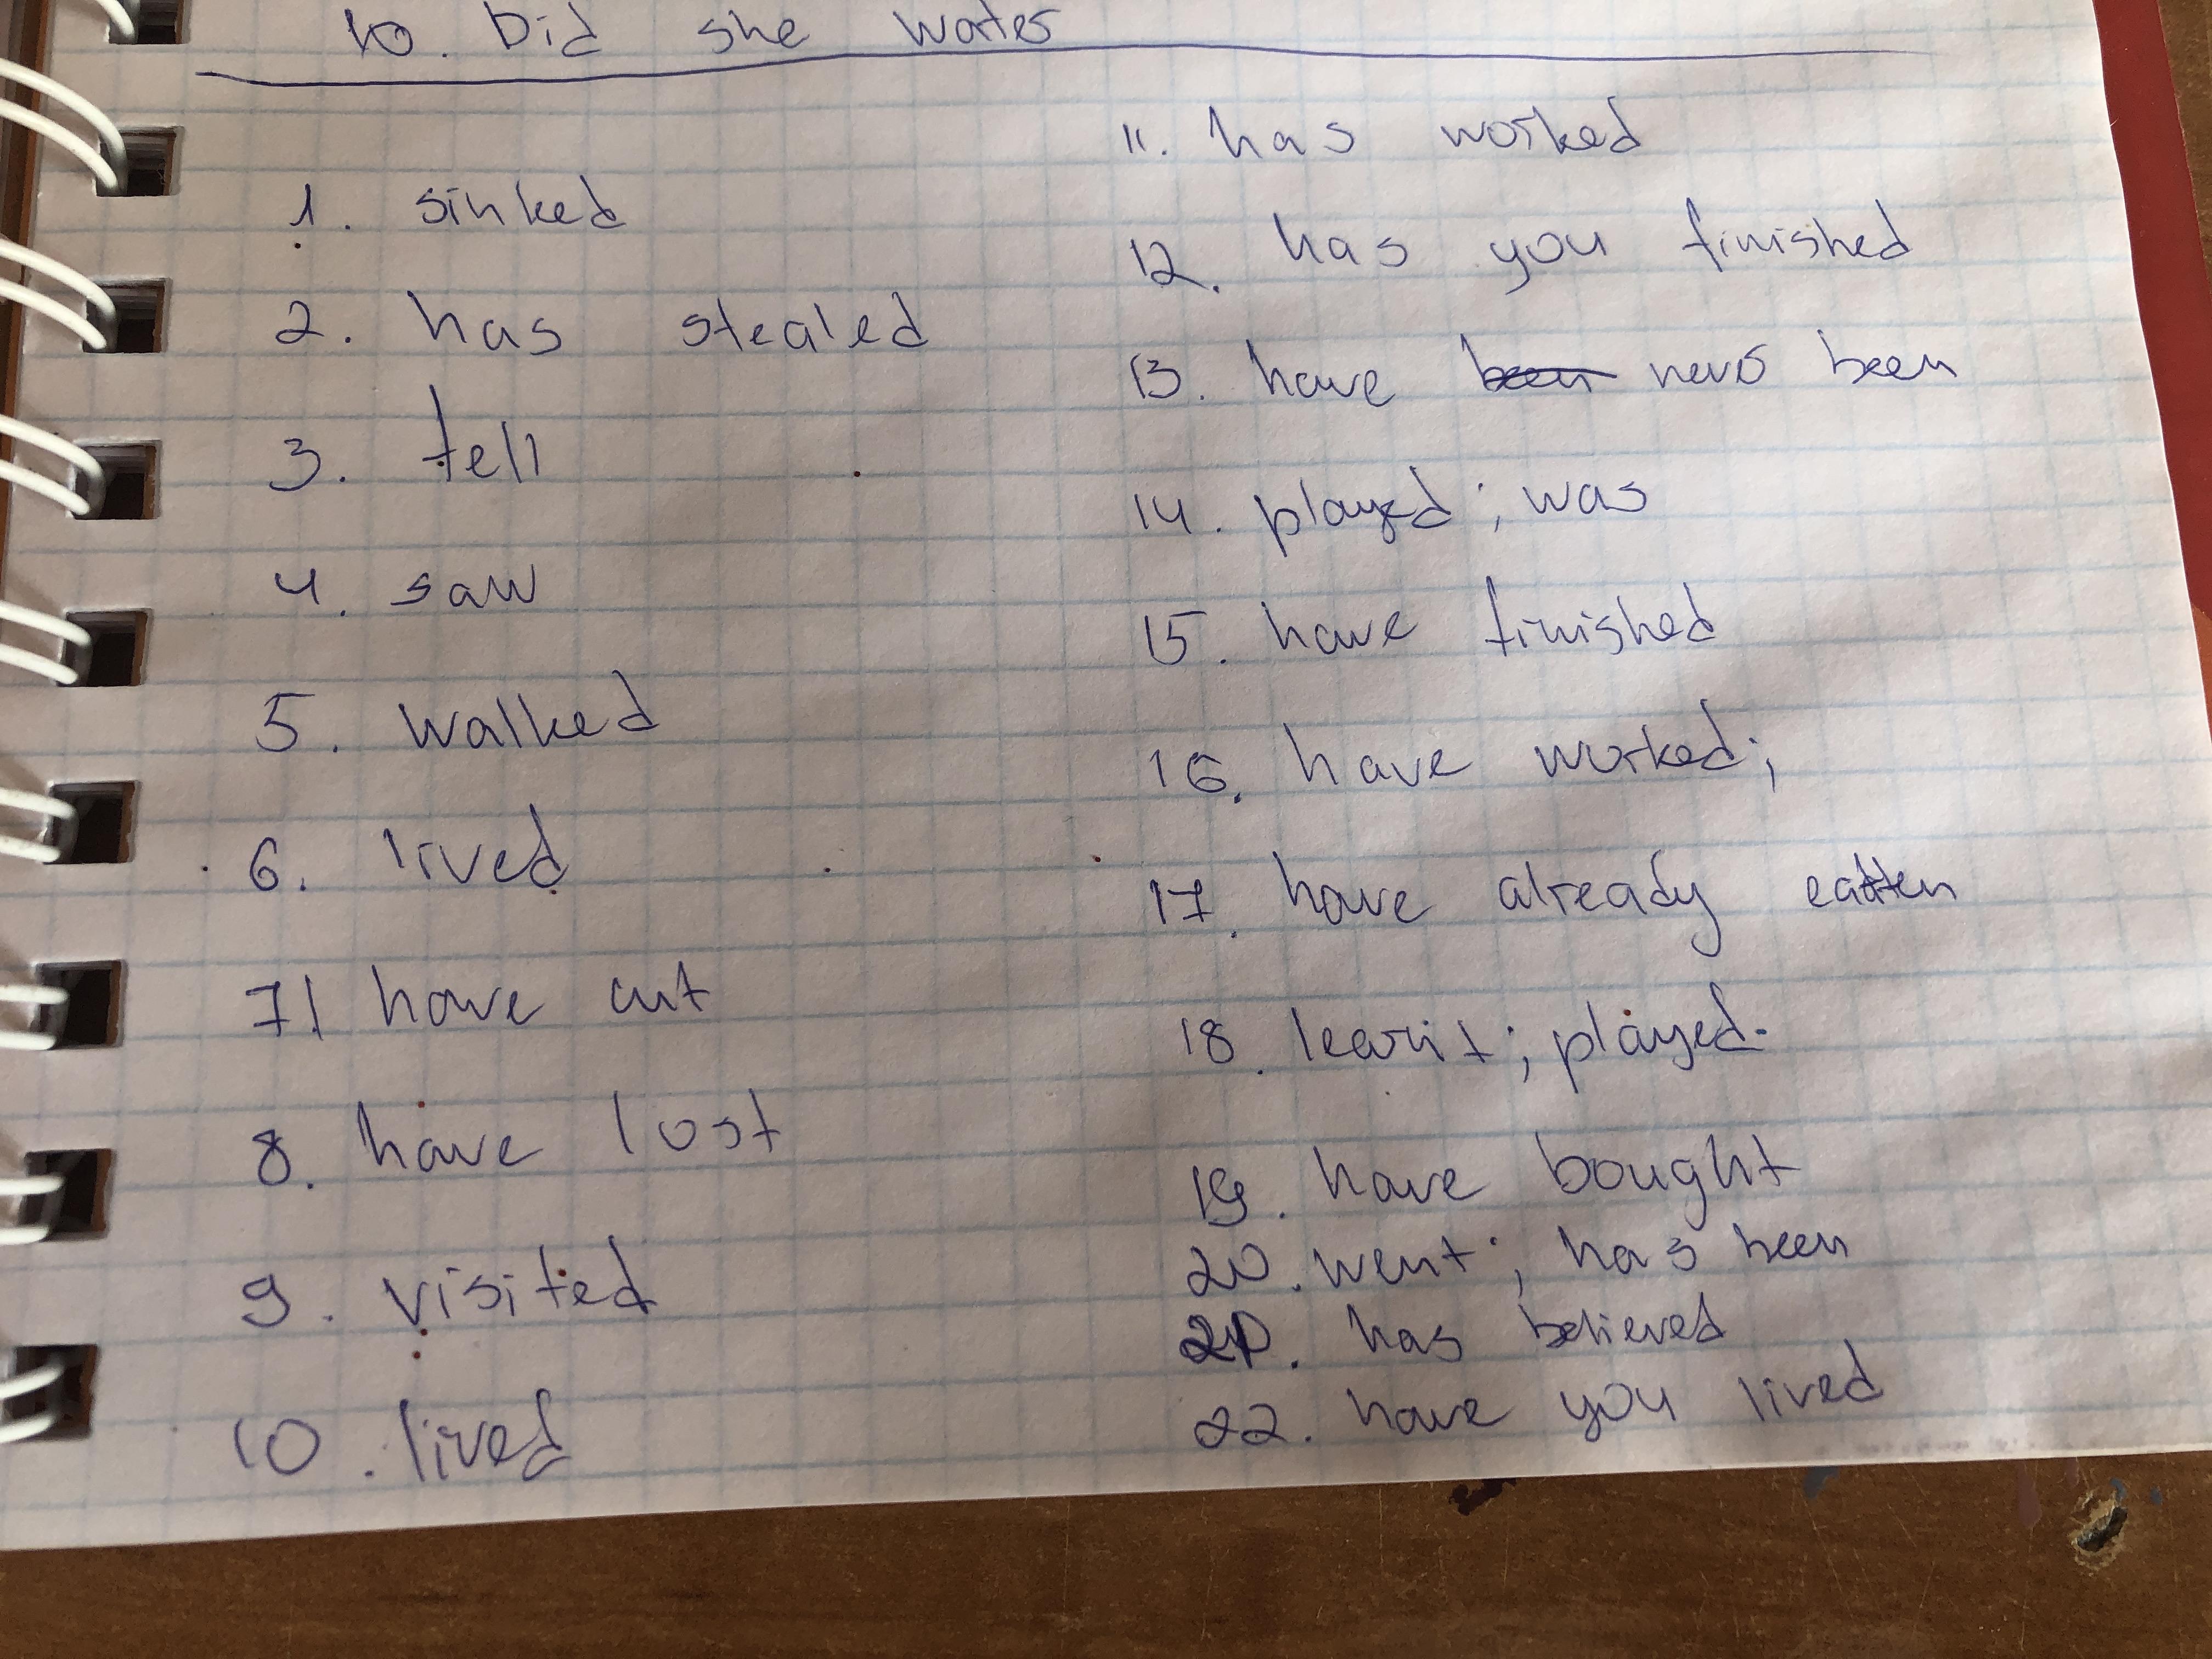 10. Did she water
1. sinked
2. has stealed
3. tell
4. saw
5. walked
6. lived
7. have cut
8. have lost
9. visited
10. lived
11. has worked
12. has you finished
13. have been never been
14. played; was
15. have finished
16. have worked;
17. have already eatten
18. learnt; played.
19. have bought
20. went; has been
21. has believed
22. have you lived